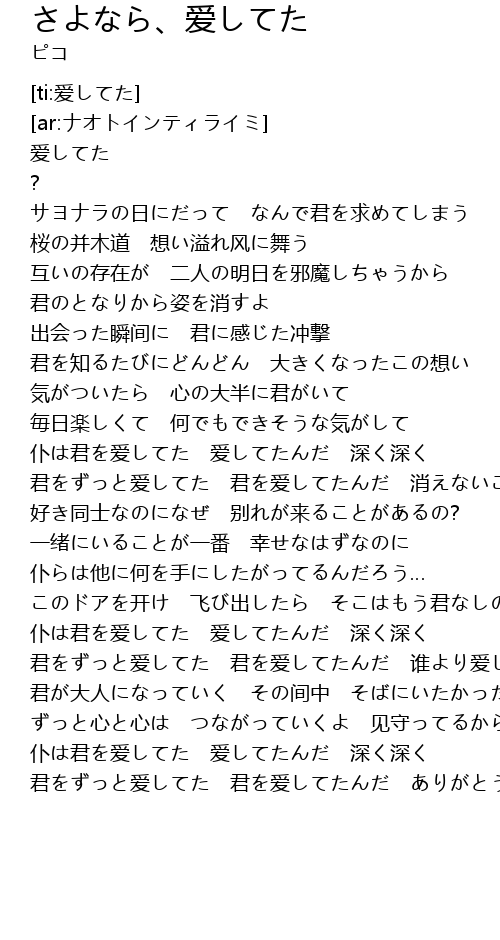 さよなら、爱してた
ピコ
[ti:爱してた]
[ar:ナオトインティライミ]
爱してた
?
サヨナラの日にだって　なんで君を求めてしまう
桜の并木道　想い溢れ风に舞う
互いの存在が　二人の明日を邪魔しちゃうから
君のとなりから姿を消すよ
出会った瞬间に　君に感じた冲撃
君を知るたびにどんどん　大きくなったこの想い
気がついたら　心の大半に君がいて
毎日楽しくて　何でもできそうな気がして
仆は君を爱してた　爱してたんだ　深く深く
君をずっと爱してた　君を爱してたんだ　消えないこ
好き同士なのになぜ　别れが来ることがあるの?
一绪にいることが一番　幸せなはずなのに
仆らは他に何を手にしたがってるんだろう…
このドアを开け　飞び出したら　そこはもう君なしの
仆は君を爱してた　爱してたんだ　深く深く
君をずっと爱してた　君を爱してたんだ　谁より爱し
君が大人になっていく　その间中　そばにいたかった
ずっと心と心は　つながっていくよ　见守ってるから
仆は君を爱してた　爱してたんだ　深く深く
君をずっと爱してた　君を爱してたんだ　ありがとう